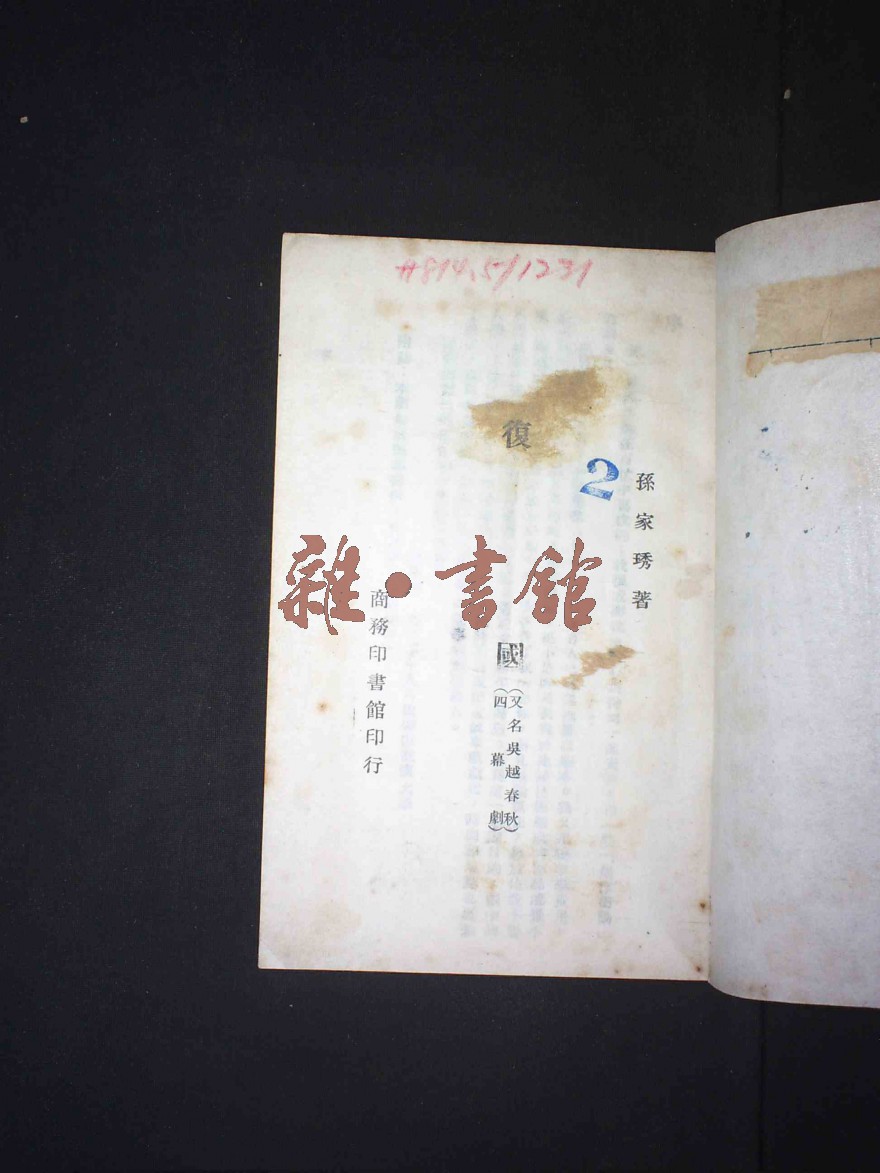 #814.5/1231
孫家琇著
2
復國
(又名吳越春秋)
(四幕劇)
商務印書館印行
雜·書館